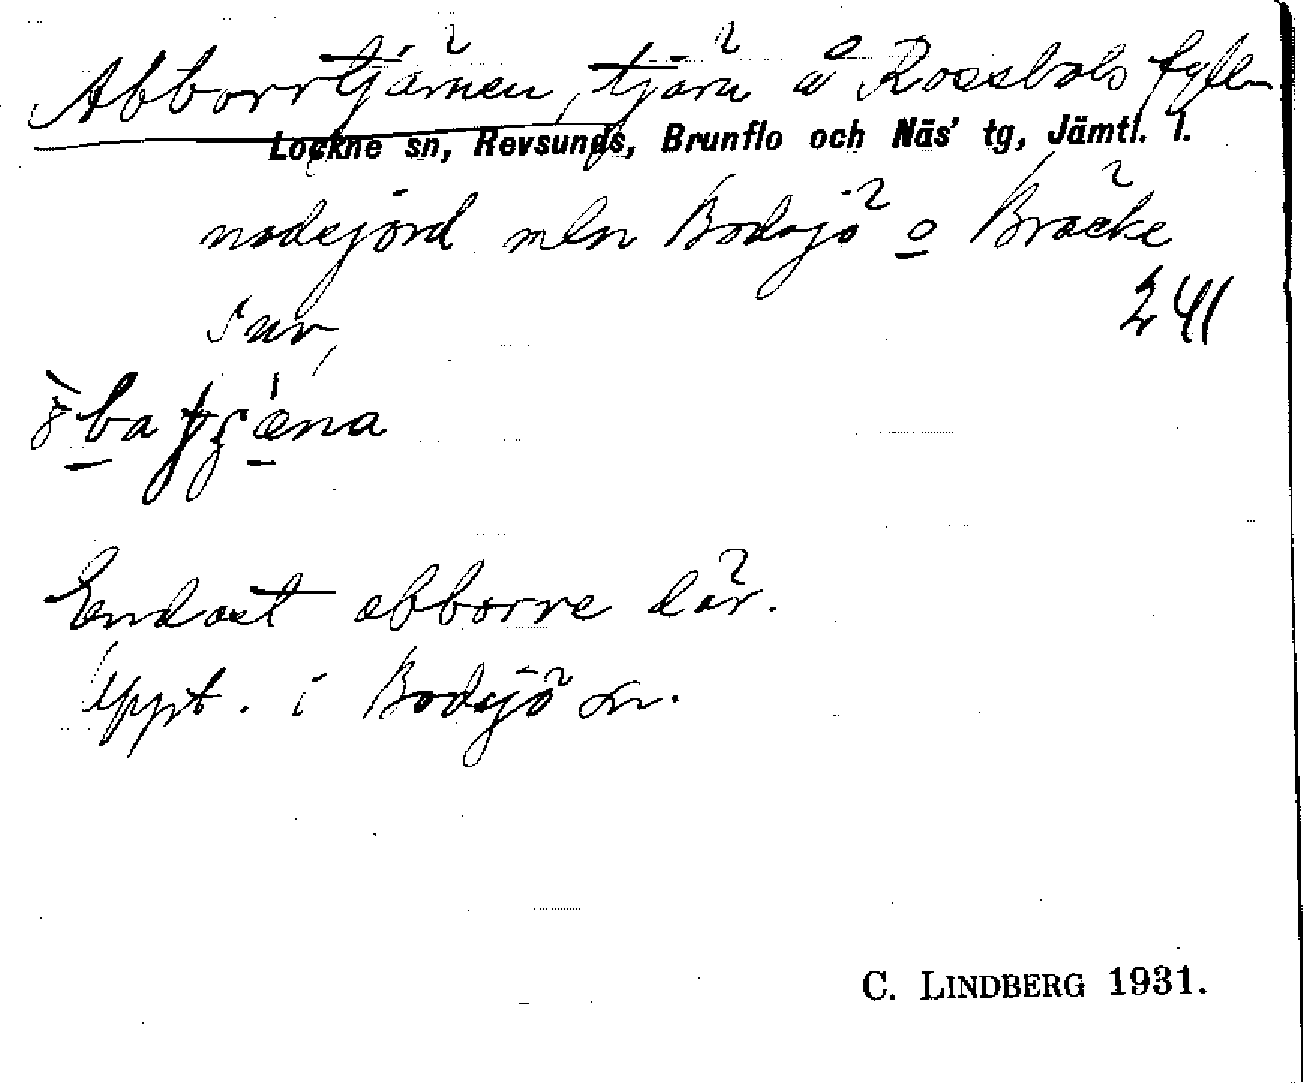 Abborrtjärnen, tjärn å Rossbols fyll-
Lockne sn, Revsunds, Brunflo och Näs' tg, Jämtl. l.
nadsjord mln Bodsjö o Bräcke
snr,
241
Endast abborre där.
Uppt. i Bodsjö sn.
C. LINDBERG 1931.